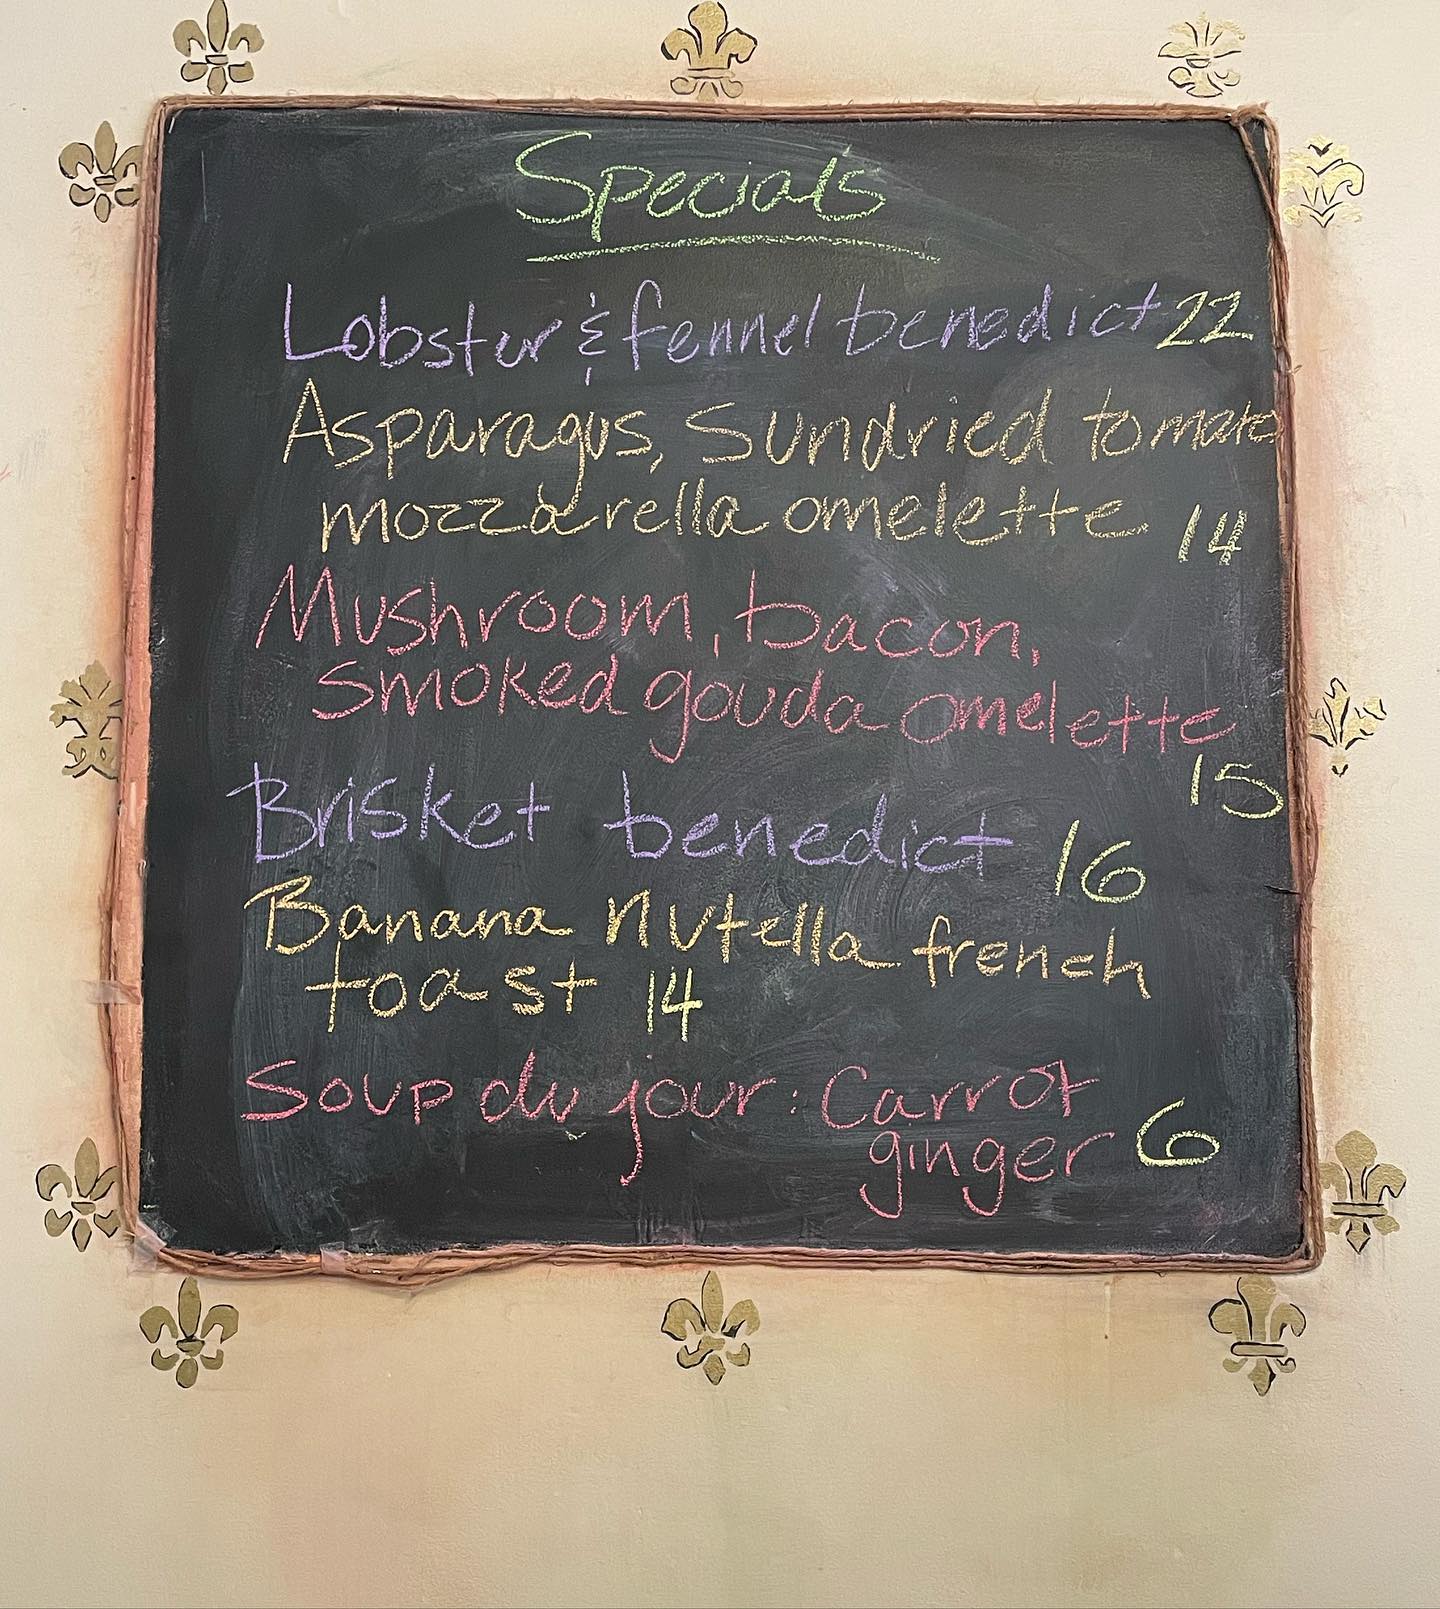 Specials
Lobster & fennel benedict 22
Asparagus, sundried tomato
mozzarella omelette 14
Mushroom, bacon,
smoked gouda omelette
15
Brisket benedict 16
Banana nutella french
toast 14
Soup du jour: Carrot
ginger 6